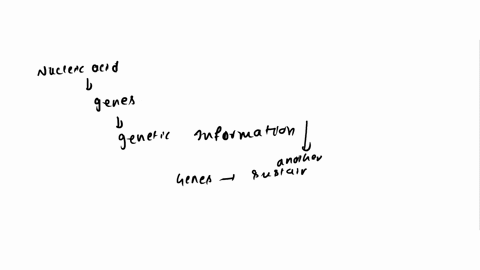 Nucleic acid
↓
genes
↓
genetic information ↓
another
Genes →